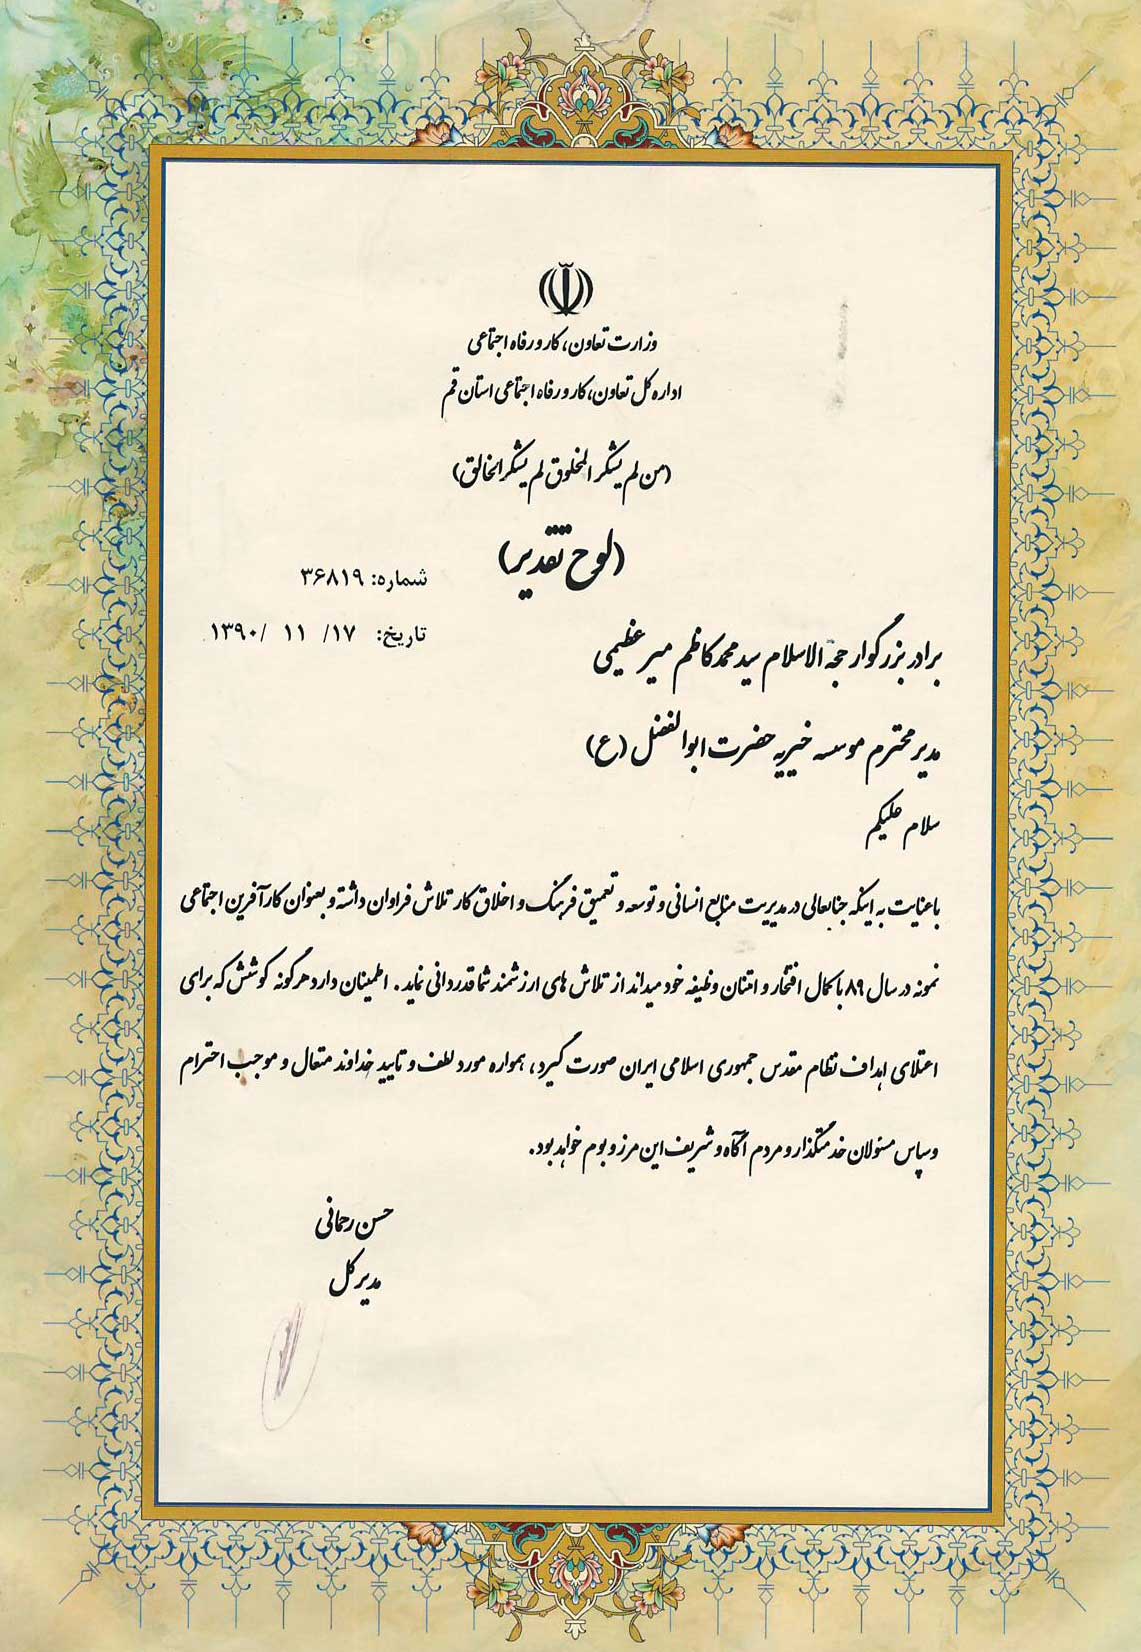 وزارت تعاون، کار و رفاه اجتماعی
اداره کل تعاون، کار و رفاه اجتماعی استان قم
(من لم یشکر المخلوق لم یشکر الخالق)
(لوح تقدیر)
شماره: ۳۶۸۱۹
تاریخ: ۱۷/ ۱۱ /۱۳۹۰
برادر بزرگوار حجه الاسلام سید محمد کاظم میر عظیمی
مدیر محترم موسسه خیریه حضرت ابوالفضل (ع)
سلام علیکم
با عنایت به اینکه جنابعالی در مدیریت منابع انسانی و توسعه و تعمیق فرهنگ و اخلاق کار تلاش فراوان داشته و بعنوان کارآفرین اجتماعی
نمونه در سال ۸۹ با کمال افتخار و امتنان وظیفه خود میداند از تلاش های ارزشمند شما قدردانی نماید. اطمینان دارد هرگونه کوشش که برای
اعتلای اهداف نظام مقدس جمهوری اسلامی ایران صورت گیرد، همواره مورد لطف و تایید خداوند متعال و موجب احترام
و سپاس مسئولان خدمتگذار و مردم آگاه و شریف این مرز و بوم خواهد بود.
حسن رحمانی
مدیر کل